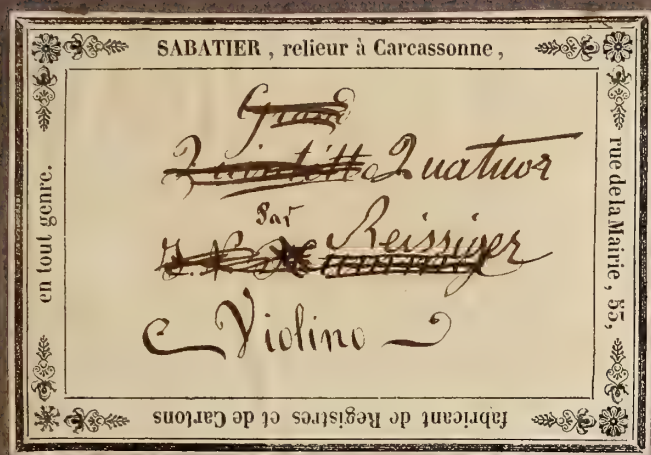 SABATIER, relieur à Carcassonne,
rue de la Mairie, 55,
fabricant de Registres et de Cartons
en tout genre.
Grand
Quintette Quatuor
Par
J. N. Hummel Reissiger
Violino